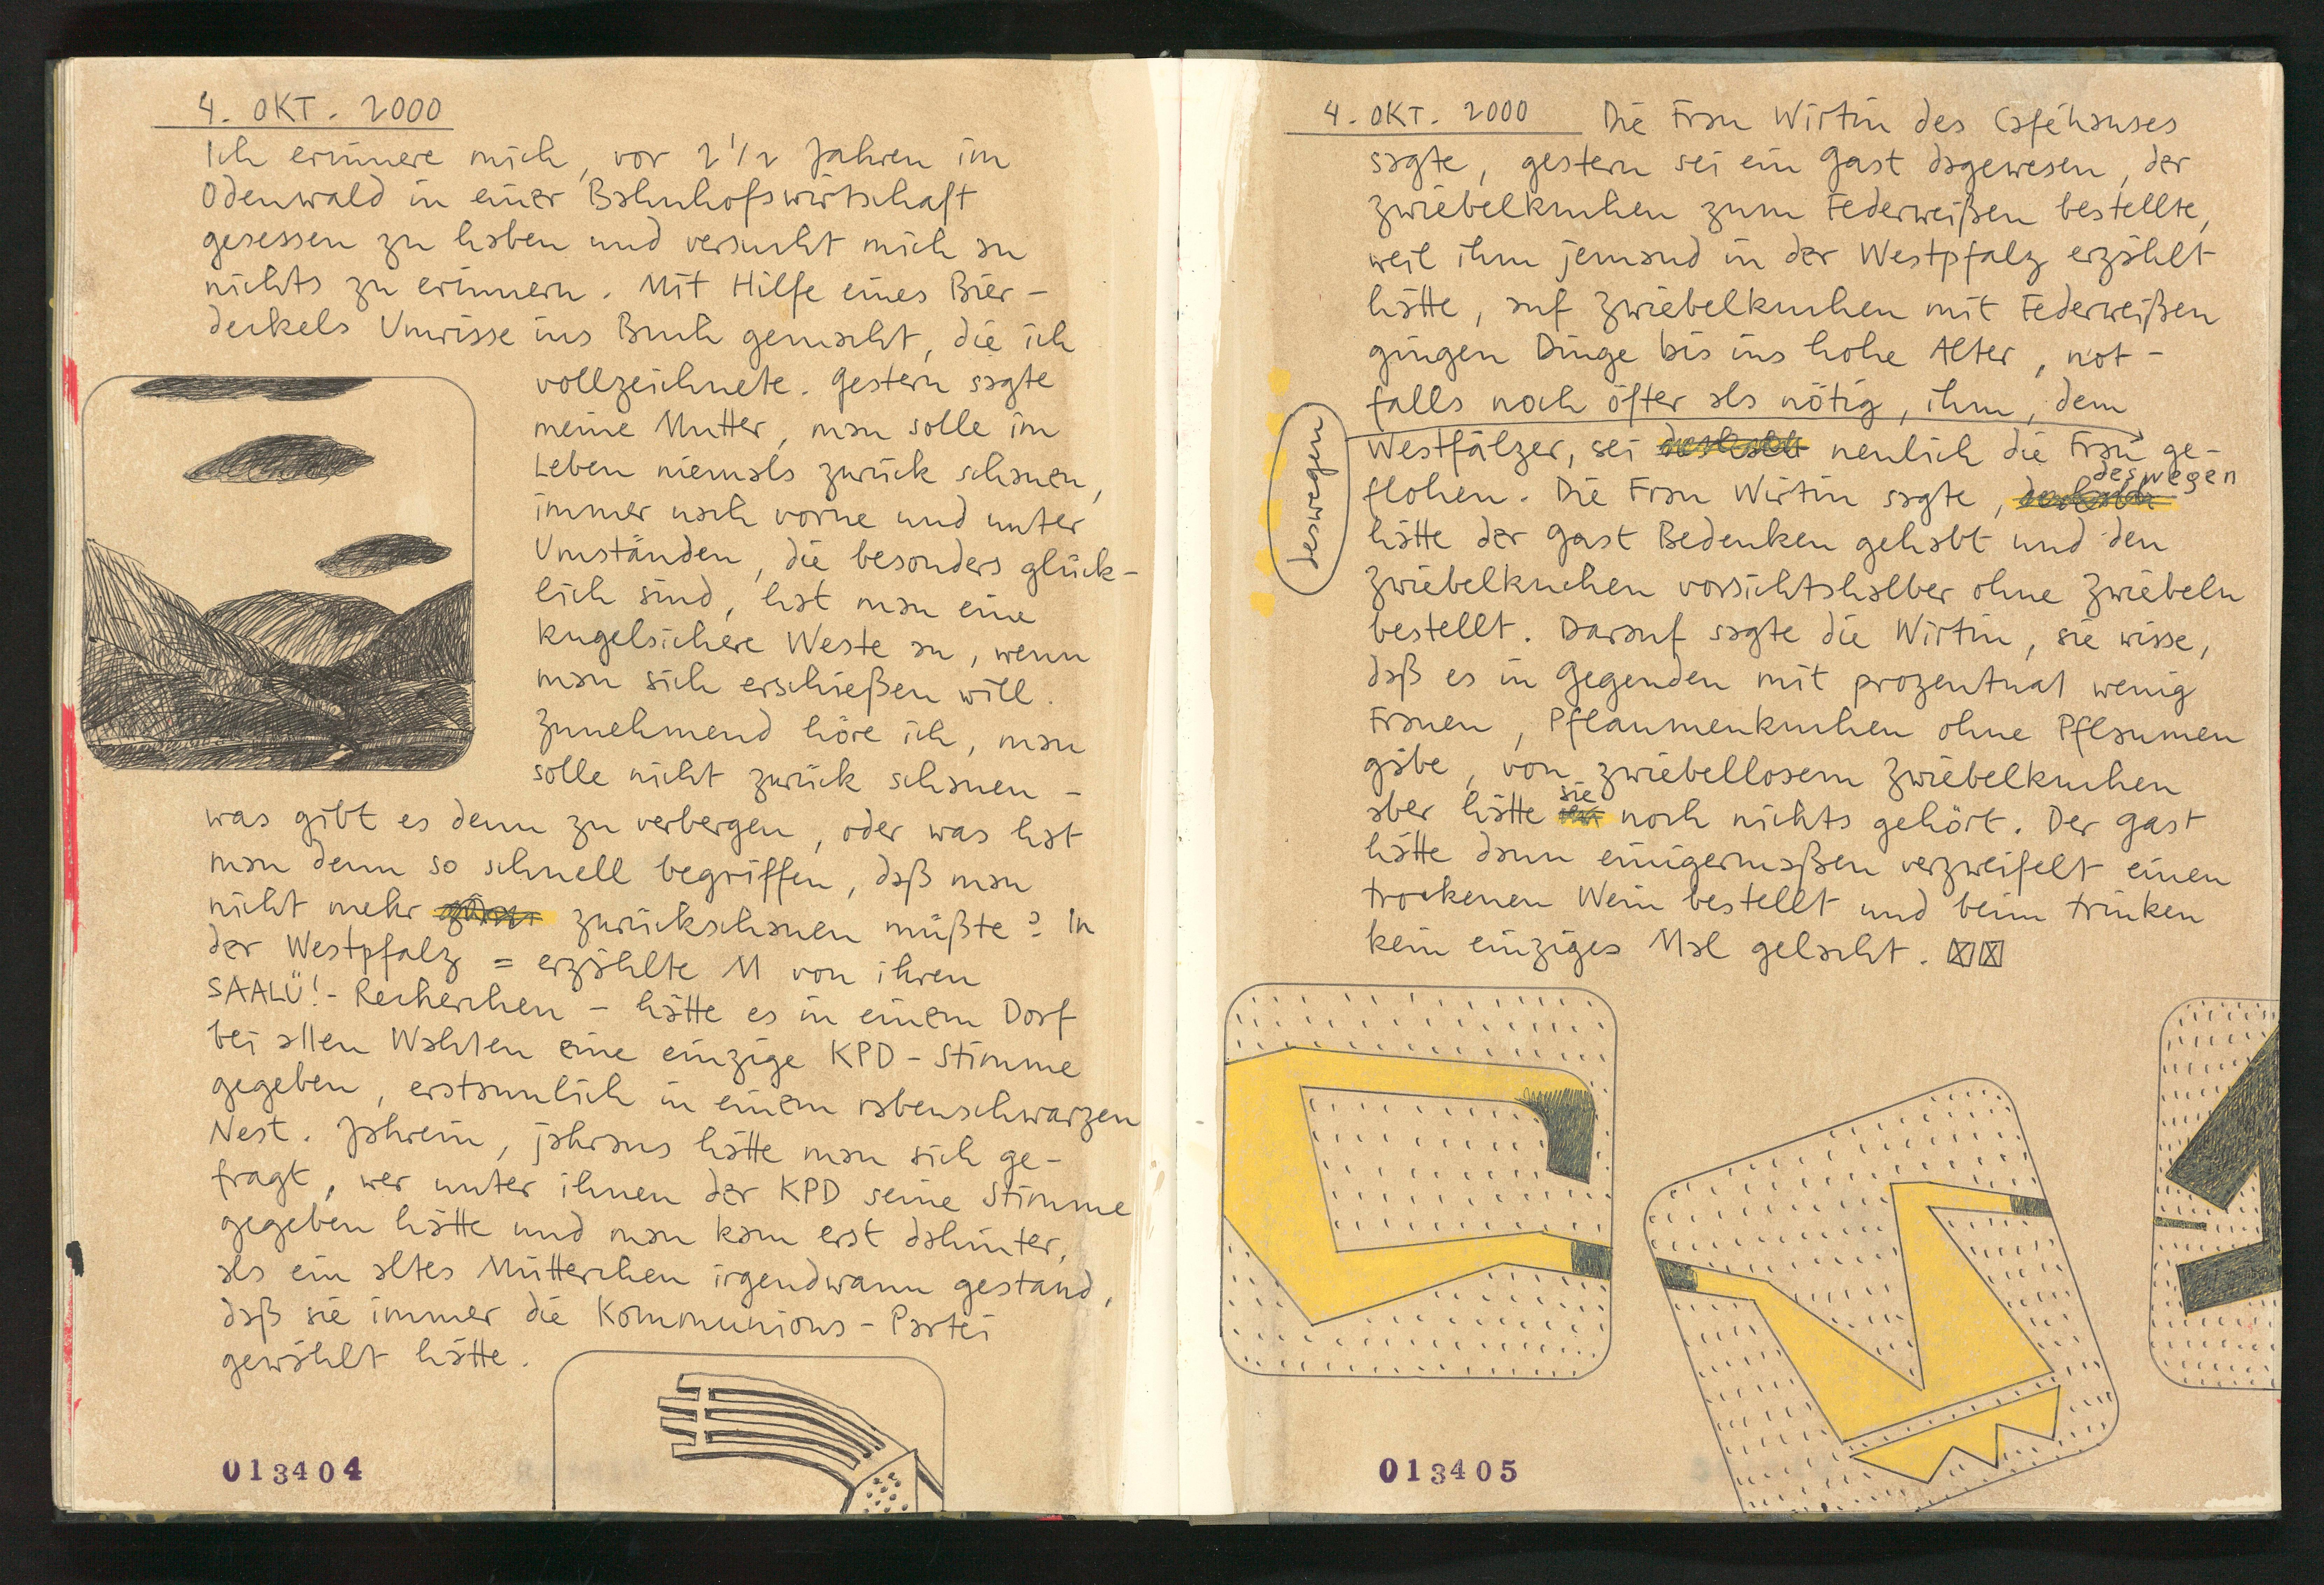 4. OKT. 2000
Ich erinnere mich, vor 2 1/2 Jahren im
Odenwald in einer Bahnhofswirtschaft
gesessen zu haben und versucht mich an
nichts zu erinnern. Mit Hilfe eines Bier-
deckels Umrisse ins Buch gemacht, die ich
vollzeichnete. Gestern sagte
meine Mutter, man solle im
Leben niemals zurück schauen,
immer nach vorne und unter
Umständen, die besonders glück-
lich sind, hat man eine
kugelsichere Weste an, wenn
man sich erschießen will.
Zunehmend höre ich, man
solle nicht zurück schauen -
was gibt es denn zu verbergen, oder was hat
man denn so schnell begriffen, daß man
nicht mehr zurückschauen müßte? In
der Westpfalz = erzählte M von ihren
SAALÜ!- Recherchen - hätte es in einem Dorf
bei allen Wahlen eine einzige KPD - Stimme
gegeben, erstaunlich in einem rabenschwarzen
Nest. Jahrein, jahraus hätte man sich ge-
fragt, wer unter ihnen der KPD seine Stimme
gegeben hätte und man kam erst dahinter,
als ein altes Mütterchen irgendwann gestand,
daß sie immer die Kommunions - Partei
gewählt hätte.
013404
4. OKT. 2000 Die Frau Wirtin des Caféhauses
sagte, gestern sei ein Gast dagewesen, der
Zwiebelkuchen zum Federweißen bestellte,
weil ihm jemand in der Westpfalz erzählt
hätte, auf Zwiebelkuchen mit Federweißen
gingen Dinge bis ins hohe Alter, not-
falls noch öfter als nötig, ihm, dem
deswegen
Westfälzer, sei neulich die Frau ge-
deswegen
flohen. Die Frau Wirtin sagte,
hätte der Gast Bedenken gehabt und den
Zwiebelkuchen vorsichtshalber ohne Zwiebeln
bestellt. Darauf sagte die Wirtin, sie wisse,
daß es in Gegenden mit prozentual wenig
Frauen, Pflaumenkuchen ohne Pflaumen
gäbe, von zwiebellosem Zwiebelkuchen
aber hätte sie noch nichts gehört. Der Gast
hätte dann einigermaßen verzweifelt einen
trockenen Wein bestellt und beim trinken
kein einziges Mal gelacht.
013405